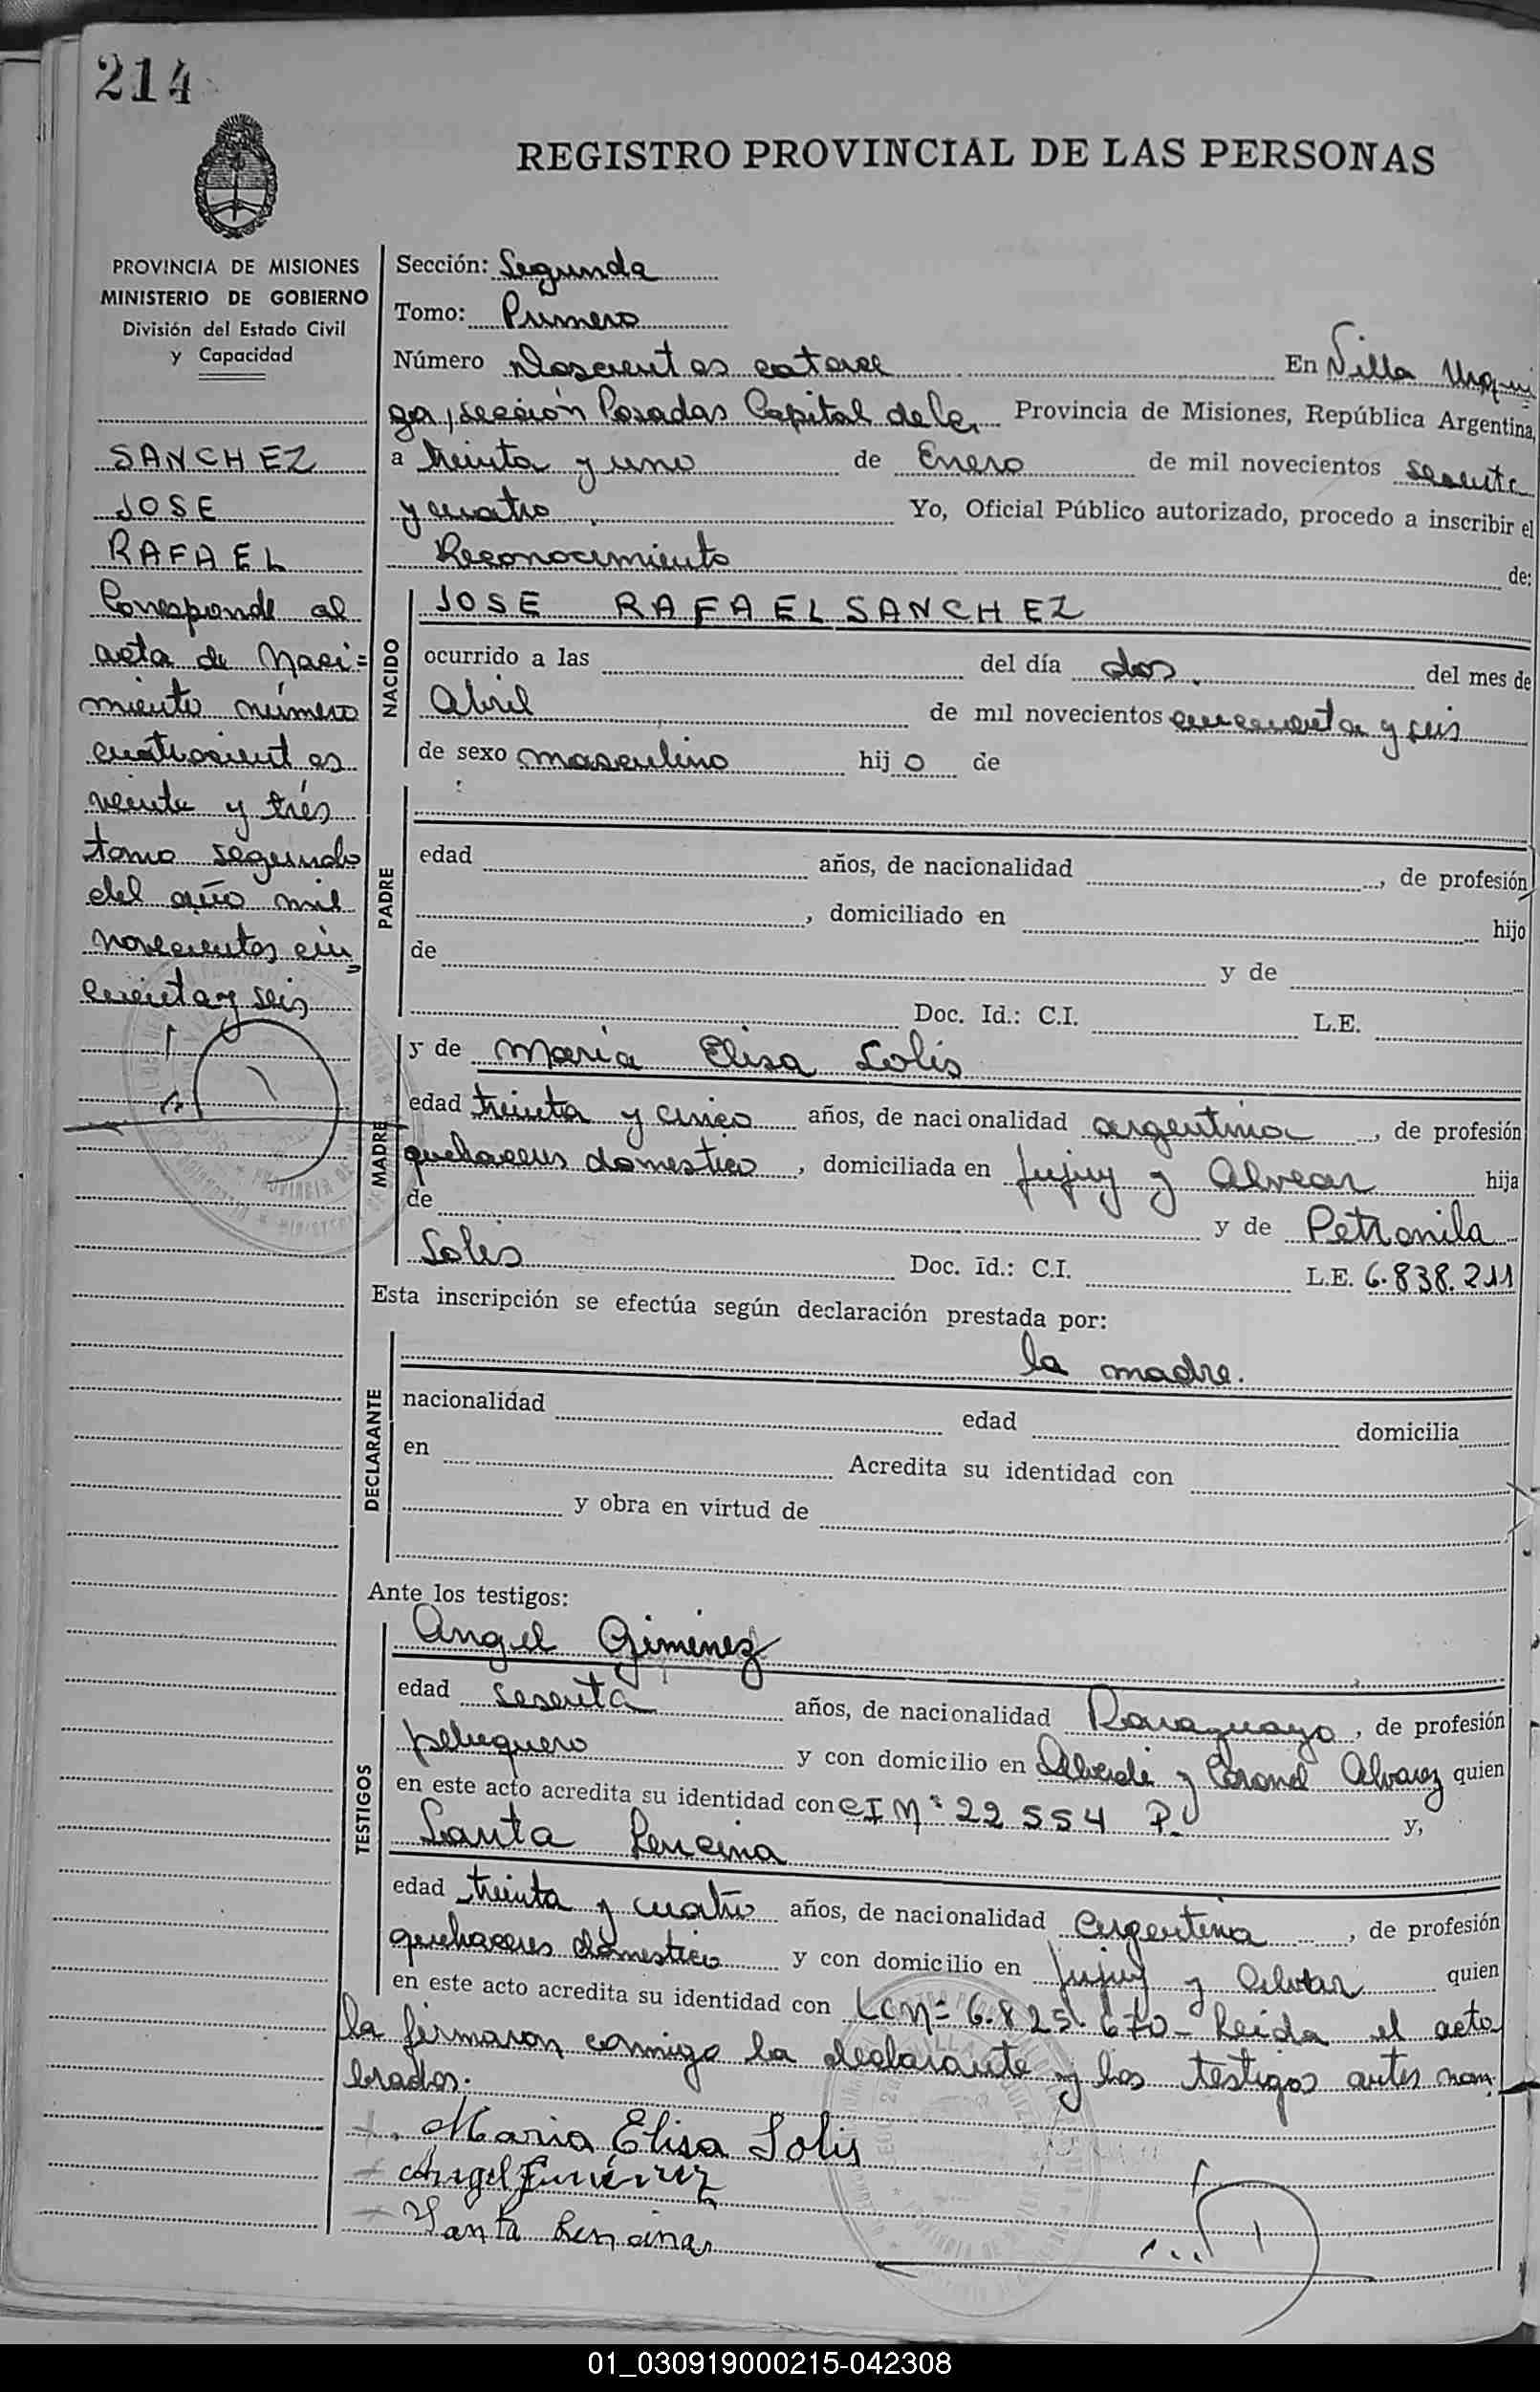 214
REGISTRO PROVINCIAL DE LAS PERSONAS
PROVINCIA DE MISIONES
MINISTERIO DE GOBIERNO
División del Estado Civil
y Capacidad
SANCHEZ
JOSE
RAFAEL
Corresponde al
acta de Naci=
miento número
cuatrocientos
veinte y trés
tomo segundo
del año mil
novecientos cin
cuenta y seis
Sección: Segunda
Tomo: Primero
Número Doscientos catorce En Villa Urqui
za, sección Posadas Capital de la Provincia de Misiones, República Argentina,
a treinta y uno de Enero de mil novecientos sesenta
y cuatro Yo, Oficial Público autorizado, procedo a inscribir el
Reconocimiento de:
NACIDO
JOSE RAFAEL SANCHEZ
ocurrido a las del día dos del mes de
Abril de mil novecientos cincuenta y seis
de sexo masculino hijo de
PADRE
edad años, de nacionalidad , de profesión
, domiciliado en hijo
de y de
Doc. Id.: C.I. L.E.
MADRE
y de María Elisa Solis
edad treinta y cinco años, de nacionalidad argentina , de profesión
quehaceres domestico , domiciliada en Jujuy y Alvear hija
de y de Petronila
Solis Doc. Id.: C.I. L.E. 6.838.211
Esta inscripción se efectúa según declaración prestada por:
DECLARANTE
la madre.
nacionalidad edad domicilia
en Acredita su identidad con
y obra en virtud de
Ante los testigos:
TESTIGOS
Angel Gimenez
edad sesenta años, de nacionalidad Paraguayo , de profesión
peluquero y con domicilio en Alberdi y Coronel Alvarez quien
en este acto acredita su identidad con CI Nº 22554 P. y,
Santa Lencina
edad treinta y cuatro años, de nacionalidad Argentina , de profesión
quehaceres domestico y con domicilio en Jujuy y Alvear quien
en este acto acredita su identidad con LC Nº 6.825.670- Leida el acta
la firmaron conmigo la declarante y los testigos antes nom
brados.
Maria Elisa Solis
Angel
Santa Lencina
01_030919000215-042308